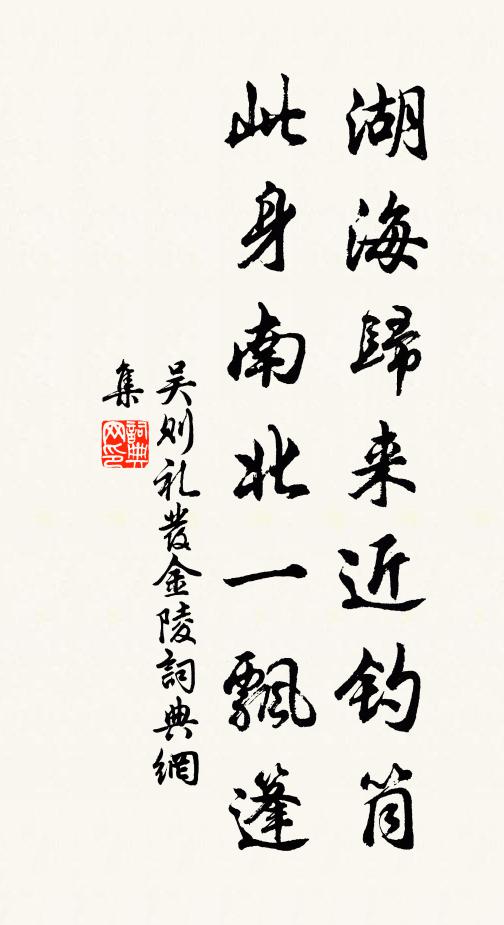 湖海歸来近钓筒
此身南北一飄蓬
吴则礼發金陵詞典網
集
詞典
网印